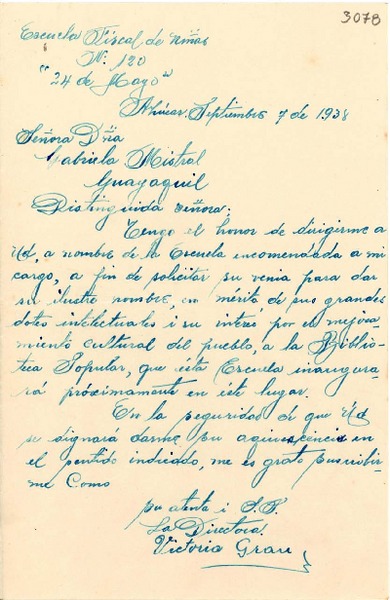 3078
Escuela Fiscal de Niñas
N: 120
"24 de Mayo"
Ahúcar, Septiembre 7 de 1938
Señora Dña
Gabriela Mistral
Guayaquil
Distinguida señora:
Tengo el honor de dirigirme a
Ud, a nombre de la Escuela encomendada a mi
cargo, a fin de solicitar su venia para dar
su ilustre nombre, en mérito de sus grandes
dotes intelectuales i su interés por el mejora-
miento cultural del pueblo, a la Biblio-
teca Popular, que ésta Escuela inaugura-
rá próximamente en éste lugar.
En la seguridad de que Ud
se dignará darme su aquiescencia en
el sentido indicado, me es grato suscribir-
me como
su atenta i S. S.
La Directora.
Victoria Grau